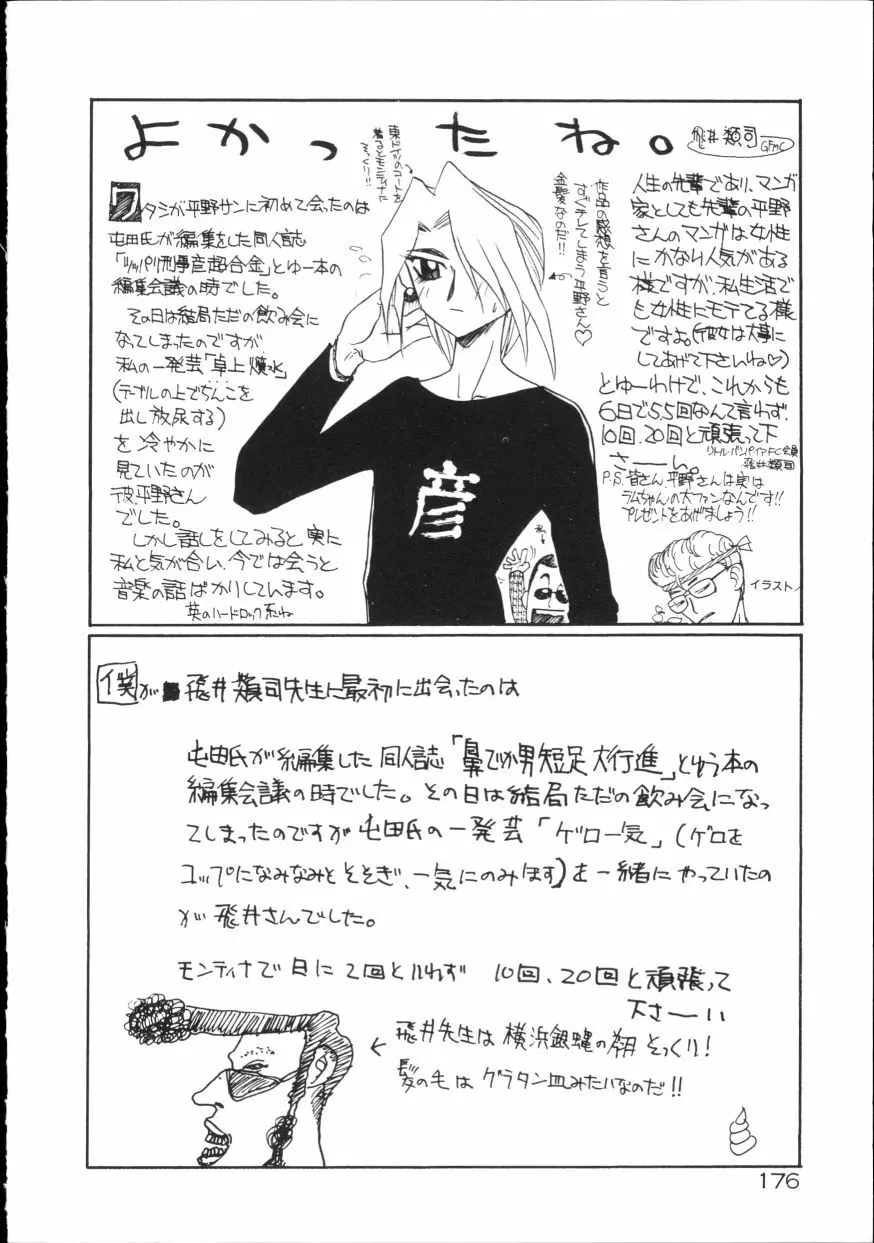 よかったね。
飛井類司
GFMC
ワタシが平野サンに初めて会ったのは
屯田氏が編集をした同人誌
「ツッパリ刑事彦超合金」とゆー本の
編集会議の時でした。
その日は結局ただの飲み会に
なってしまったのですが
私の一発芸「卓上噴水」
(テーブルの上でちんこを
出し放尿する)
を冷やかに
見ていたのが
彼、平野さん
でした。
しかし話しをしてみると実に
私と気が合い、今では会うと
音楽の話ばかりしています。
英のハードロック系ね
東ドイツのコートを
着るとモンティナだ
そっくり!!
作品の感想を言うと
すぐテレてしまう平野さん♡
金髪なのだ!!
彦
私
人生の先輩であり、マンガ
家としても先輩の平野
さんのマンガは女性
にかなり人気がある
様ですが、私生活で
も女性にモテてる様
ですね(彼女は大事に
してあげて下さいね♡)
とゆーわけで、これからも
6日で55回なんて言わず、
10回、20回と頑張って下
さーい。
リトルバンパイアFC会員
飛井類司
P.S. 皆さん、平野さんは実は
ラムちゃんの大ファンなんです!!
プレゼントをあげましょう!!
イラスト
僕が飛井類司先生に最初に出会ったのは
屯田氏が編集した同人誌「鼻でか男短足大行進」とゆう本の
編集会議の時でした。その日は結局ただの飲み会になっ
てしまったのですが屯田氏の一発芸「ゲロ一気」(ゲロを
コップになみなみとそそぎ、一気にのみほす)を一緒にやっていたの
が飛井さんでした。
モンティナで日に2回といわず 10回、20回と頑張って
下さーい
飛井先生は横浜銀蝿の翔そっくり!
髪の毛はグラタン皿みたいなのだ!!
176